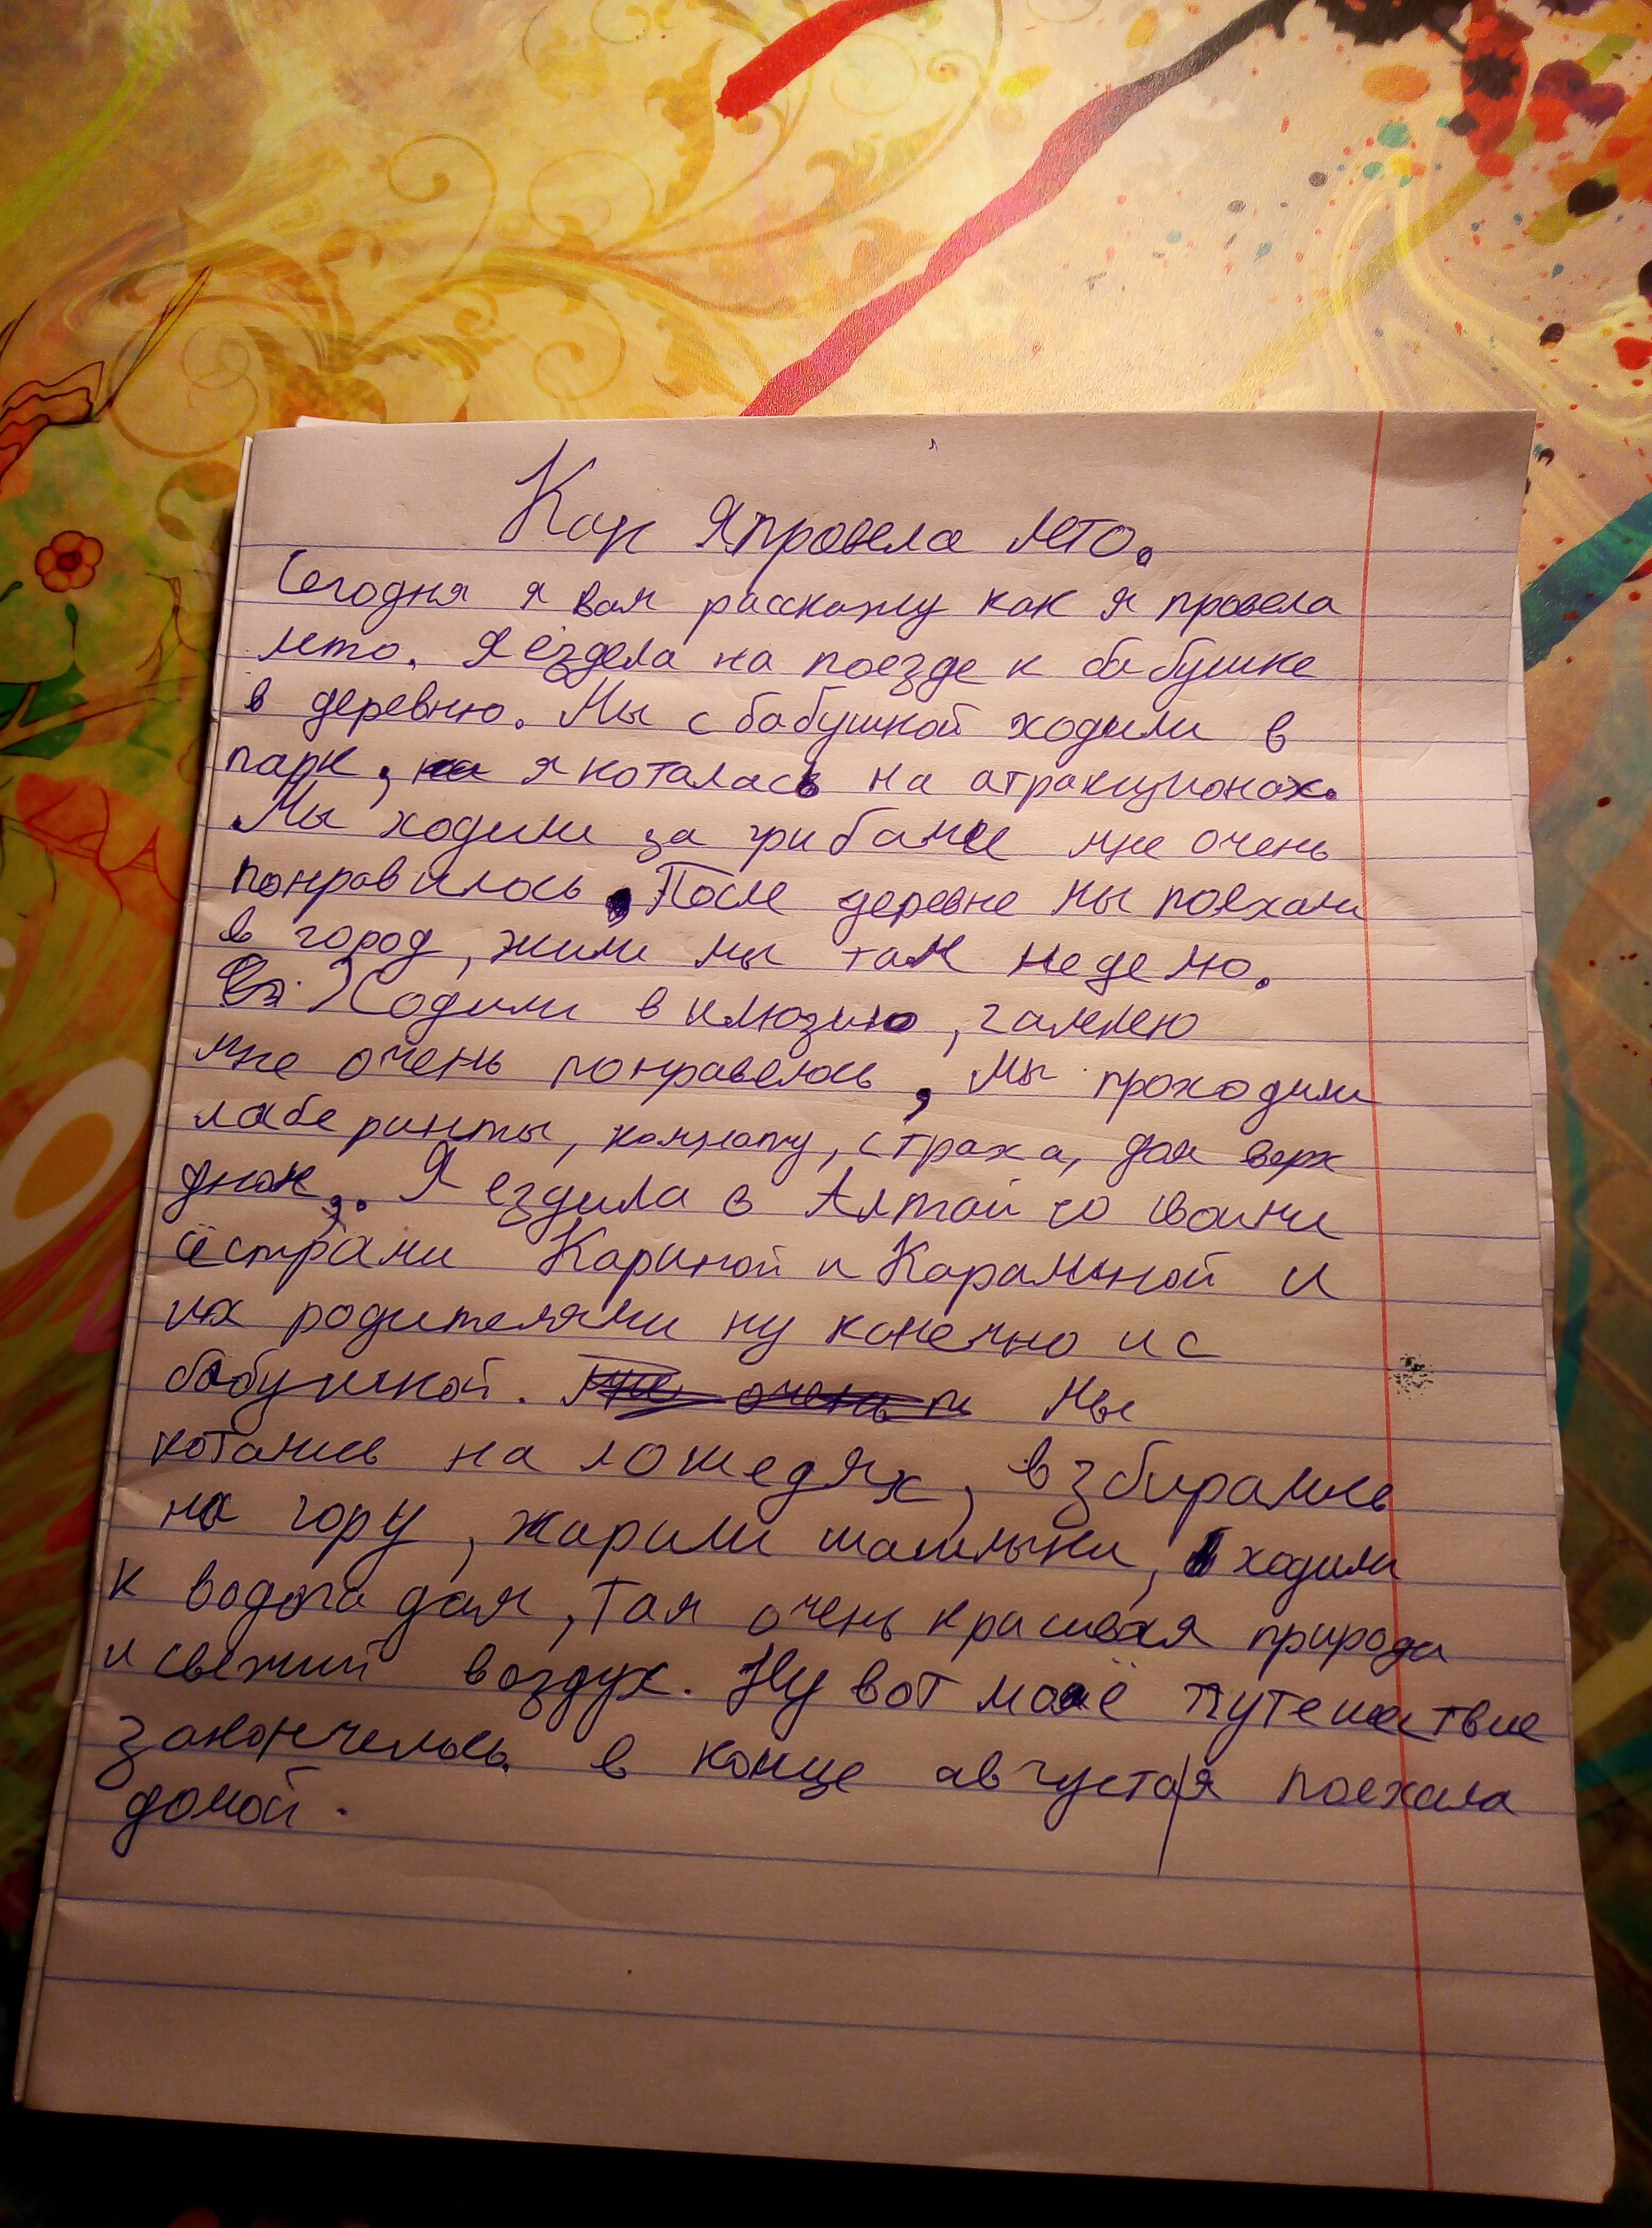 Как я провела лето.
Сегодня я вам расскажу как я провела
лето. Я ездела на поезде к бабушке
в деревню. Мы с бабушкой ходили в
парк, я каталась на атракционах.
Мы ходили за грибами мне очень
понравилось. После деревне мы поехали
в город, жили мы там неделю.
Ходили в илюзию, галлею
мне очень понравелось, Мы проходили
лаберинты, комнату, страха, дом верх
дном,. Я ездила в Алтай со своими
сёстрами Кариной и Караминой и
их родителями ну конечно и с
бабушкой. Мы
котались на лошедях, взбирались
на гору, жарили шашлыки, ходили
к водопадам, там очень красивая природа
и свежий воздух. Ну вот моё путешествие
закончелось в конце августа я поехала
домой.